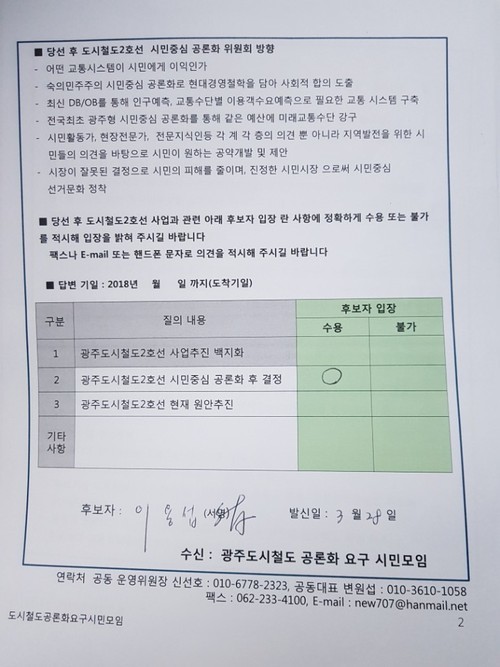 ■ 당선 후 도시철도2호선 시민중심 공론화 위원회 방향
- 어떤 교통시스템이 시민에게 이익인가
- 숙의민주주의 시민중심 공론화로 현대경영철학을 담아 사회적 합의 도출
- 최신 DB/OB를 통해 인구예측, 교통수단별 이용객수요예측으로 필요한 교통 시스템 구축
- 전국최초 광주형 시민중심 공론화를 통해 같은 예산에 미래교통수단 강구
- 시민활동가, 현장전문가, 전문지식인등 각 계 각 층의 의견 뿐 아니라 지역발전을 위한 시
민들의 의견을 바탕으로 시민이 원하는 공약개발 및 제안
- 시장이 잘못된 결정으로 시민의 피해를 줄이며, 진정한 시민시장 으로써 시민중심
선거문화 정착
■ 당선 후 도시철도2호선 사업과 관련 아래 후보자 입장 란 사항에 정확하게 수용 또는 불가
를 적시해 입장을 밝혀 주시길 바랍니다
팩스나 E-mail 또는 핸드폰 문자로 의견을 적시해 주시길 바랍니다
■ 답변 기일 : 2018년 월 일 까지(도착기일)
구분 질의 내용 후보자 입장
수용 불가
1 광주도시철도2호선 사업추진 백지화
2 광주도시철도2호선 시민중심 공론화 후 결정 ○
3 광주도시철도2호선 현재 원안추진
기타
사항
후보자 : 이용섭 (서명) 발신일 : 3 월 28 일
수신 : 광주도시철도 공론화 요구 시민모임
연락처 공동 운영위원장 신선호 : 010-6778-2323, 공동대표 변원섭 : 010-3610-1058
팩스 : 062-233-4100, E-mail : new707@hanmail.net
도시철도공론화요구시민모임 2